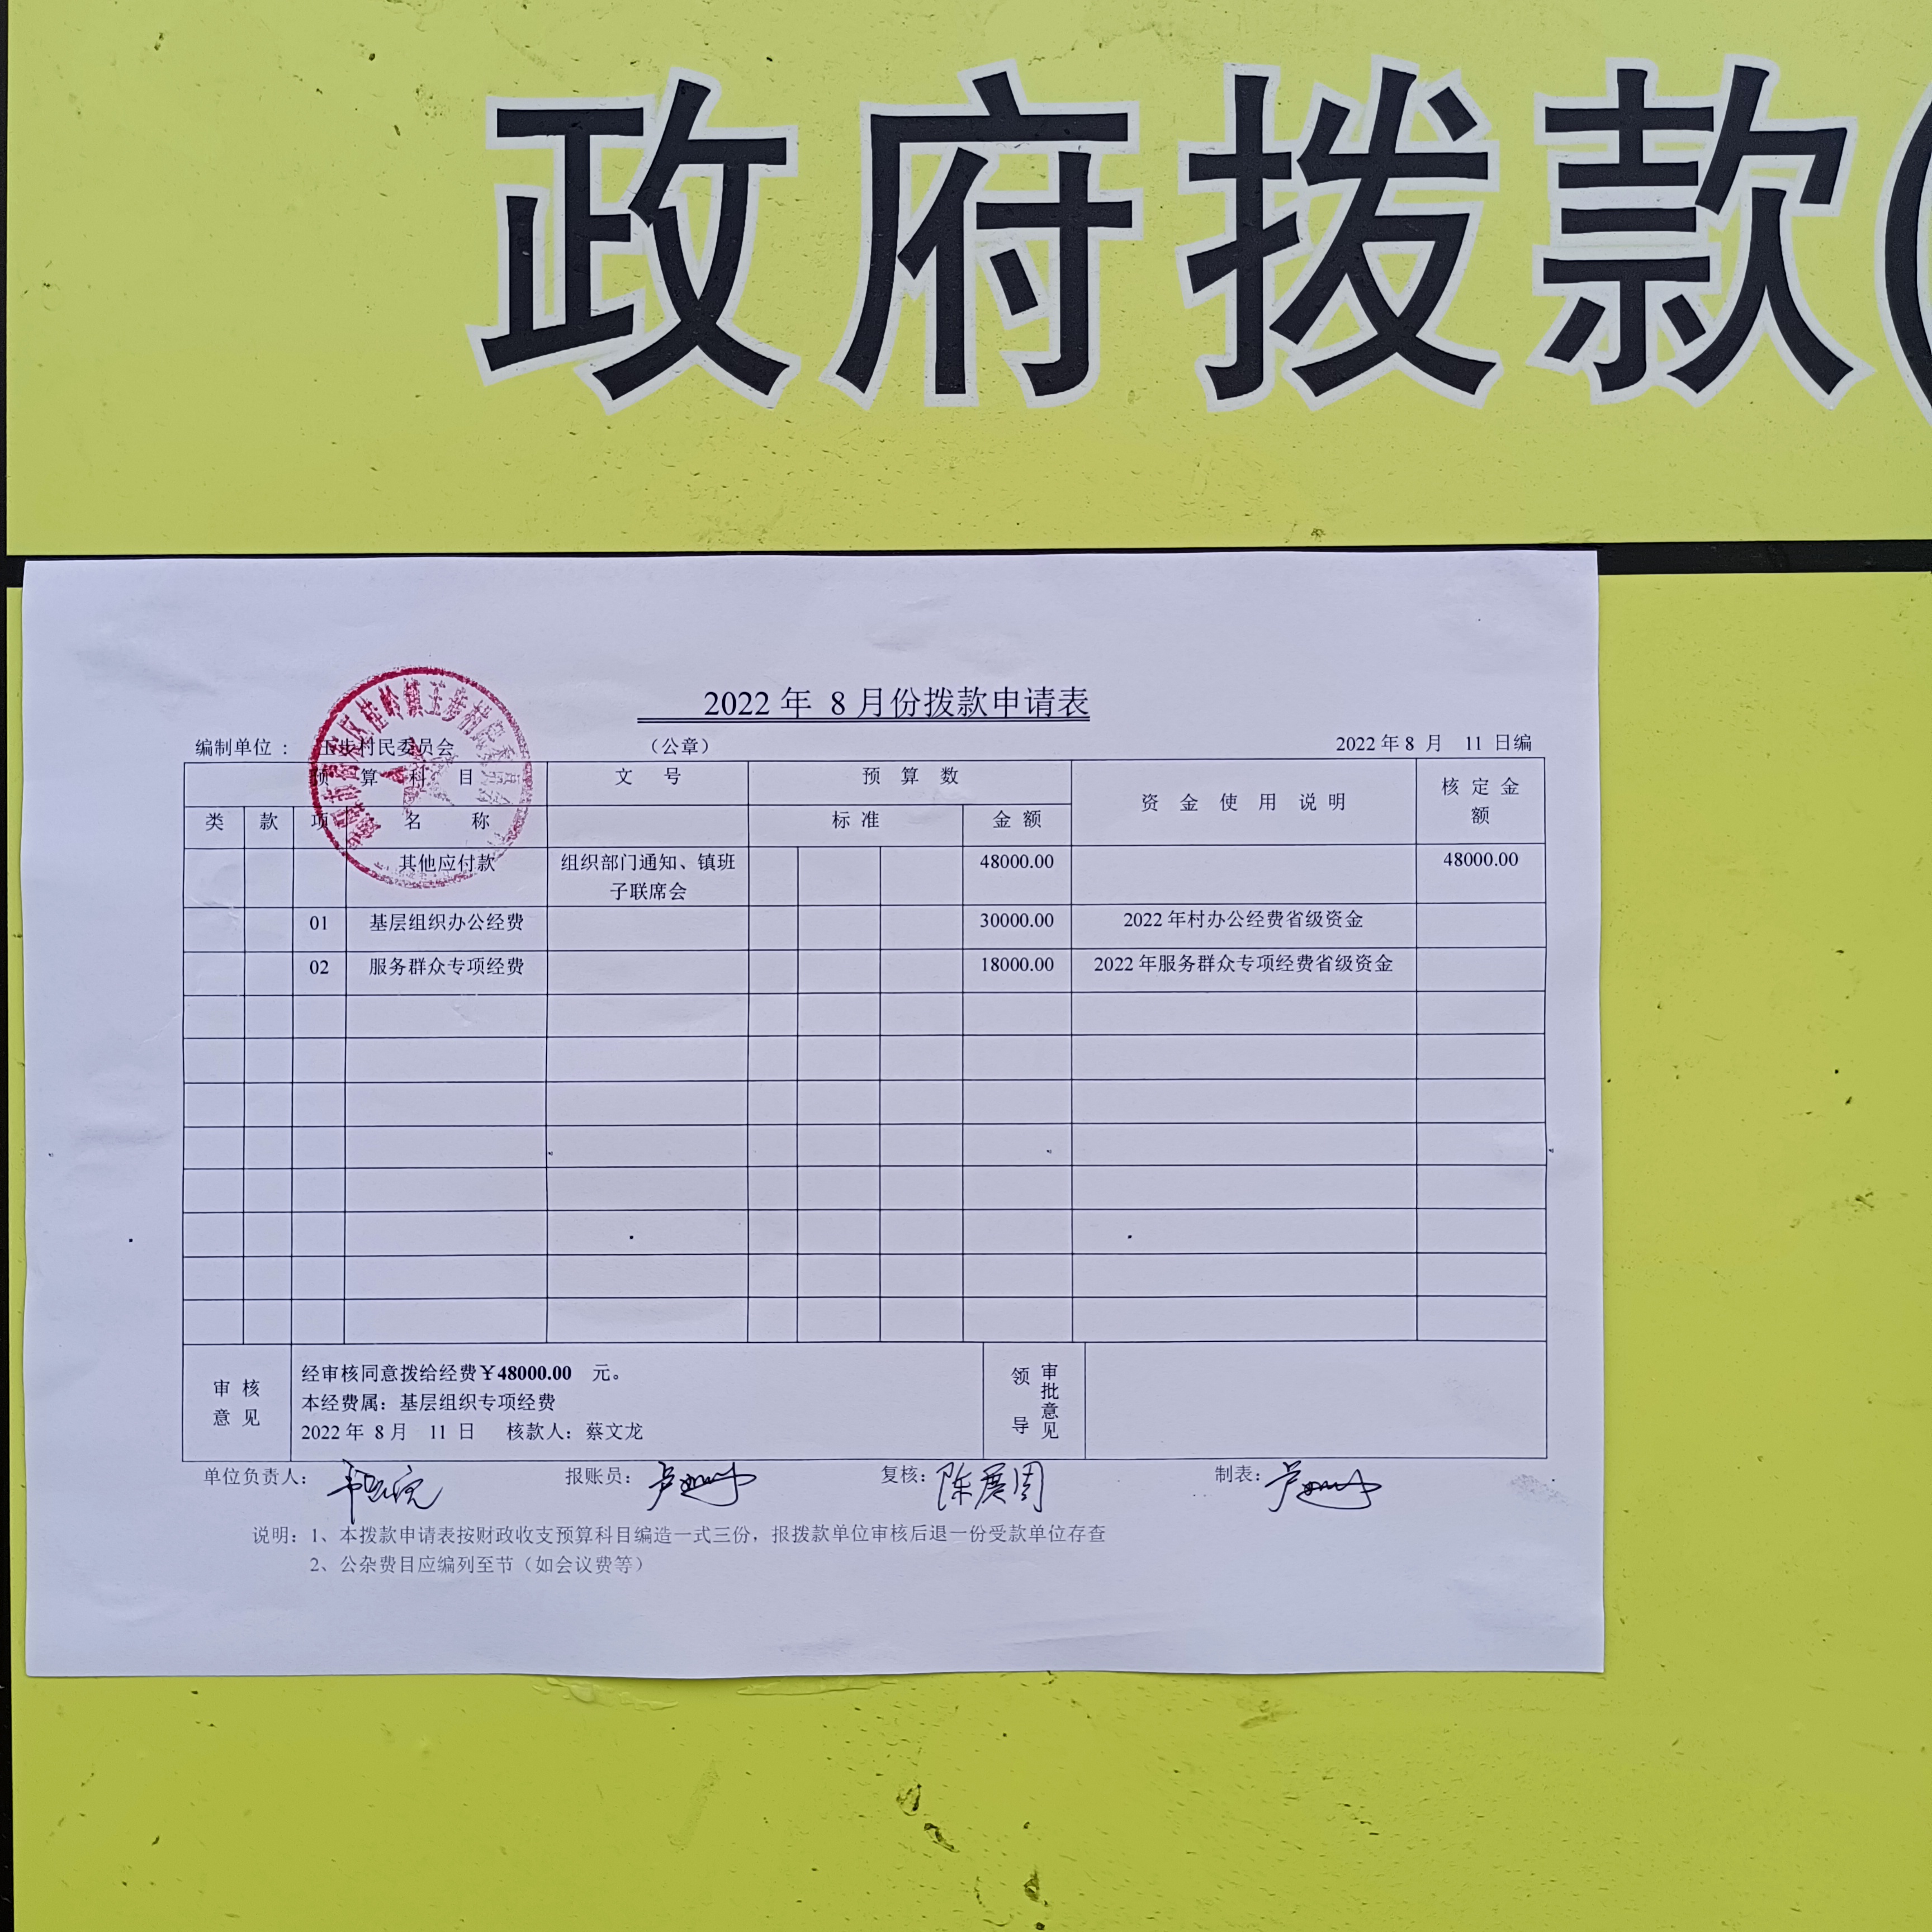 政府拨款(
2022 年 8 月份拨款申请表
编制单位 : 玉步村民委员会 (公章) 2022 年 8 月 11 日编
预 算 科 目 文 号 预 算 数 资 金 使 用 说 明 核 定 金 额
类 款 项 名 称 标 准 金 额
其他应付款 组织部门通知、镇班子联席会 48000.00 48000.00
01 基层组织办公经费 30000.00 2022 年村办公经费省级资金
02 服务群众专项经费 18000.00 2022 年服务群众专项经费省级资金
审 核 意 见
经审核同意拨给经费￥48000.00 元。
本经费属：基层组织专项经费
2022 年 8 月 11 日 核款人：蔡文龙
领导 审批意见
单位负责人： 报账员： 复核：陈展周 制表：
说明：1、本拨款申请表按财政收支预算科目编造一式三份，报拨款单位审核后退一份受款单位存查
2、公杂费目应编列至节（如会议费等）